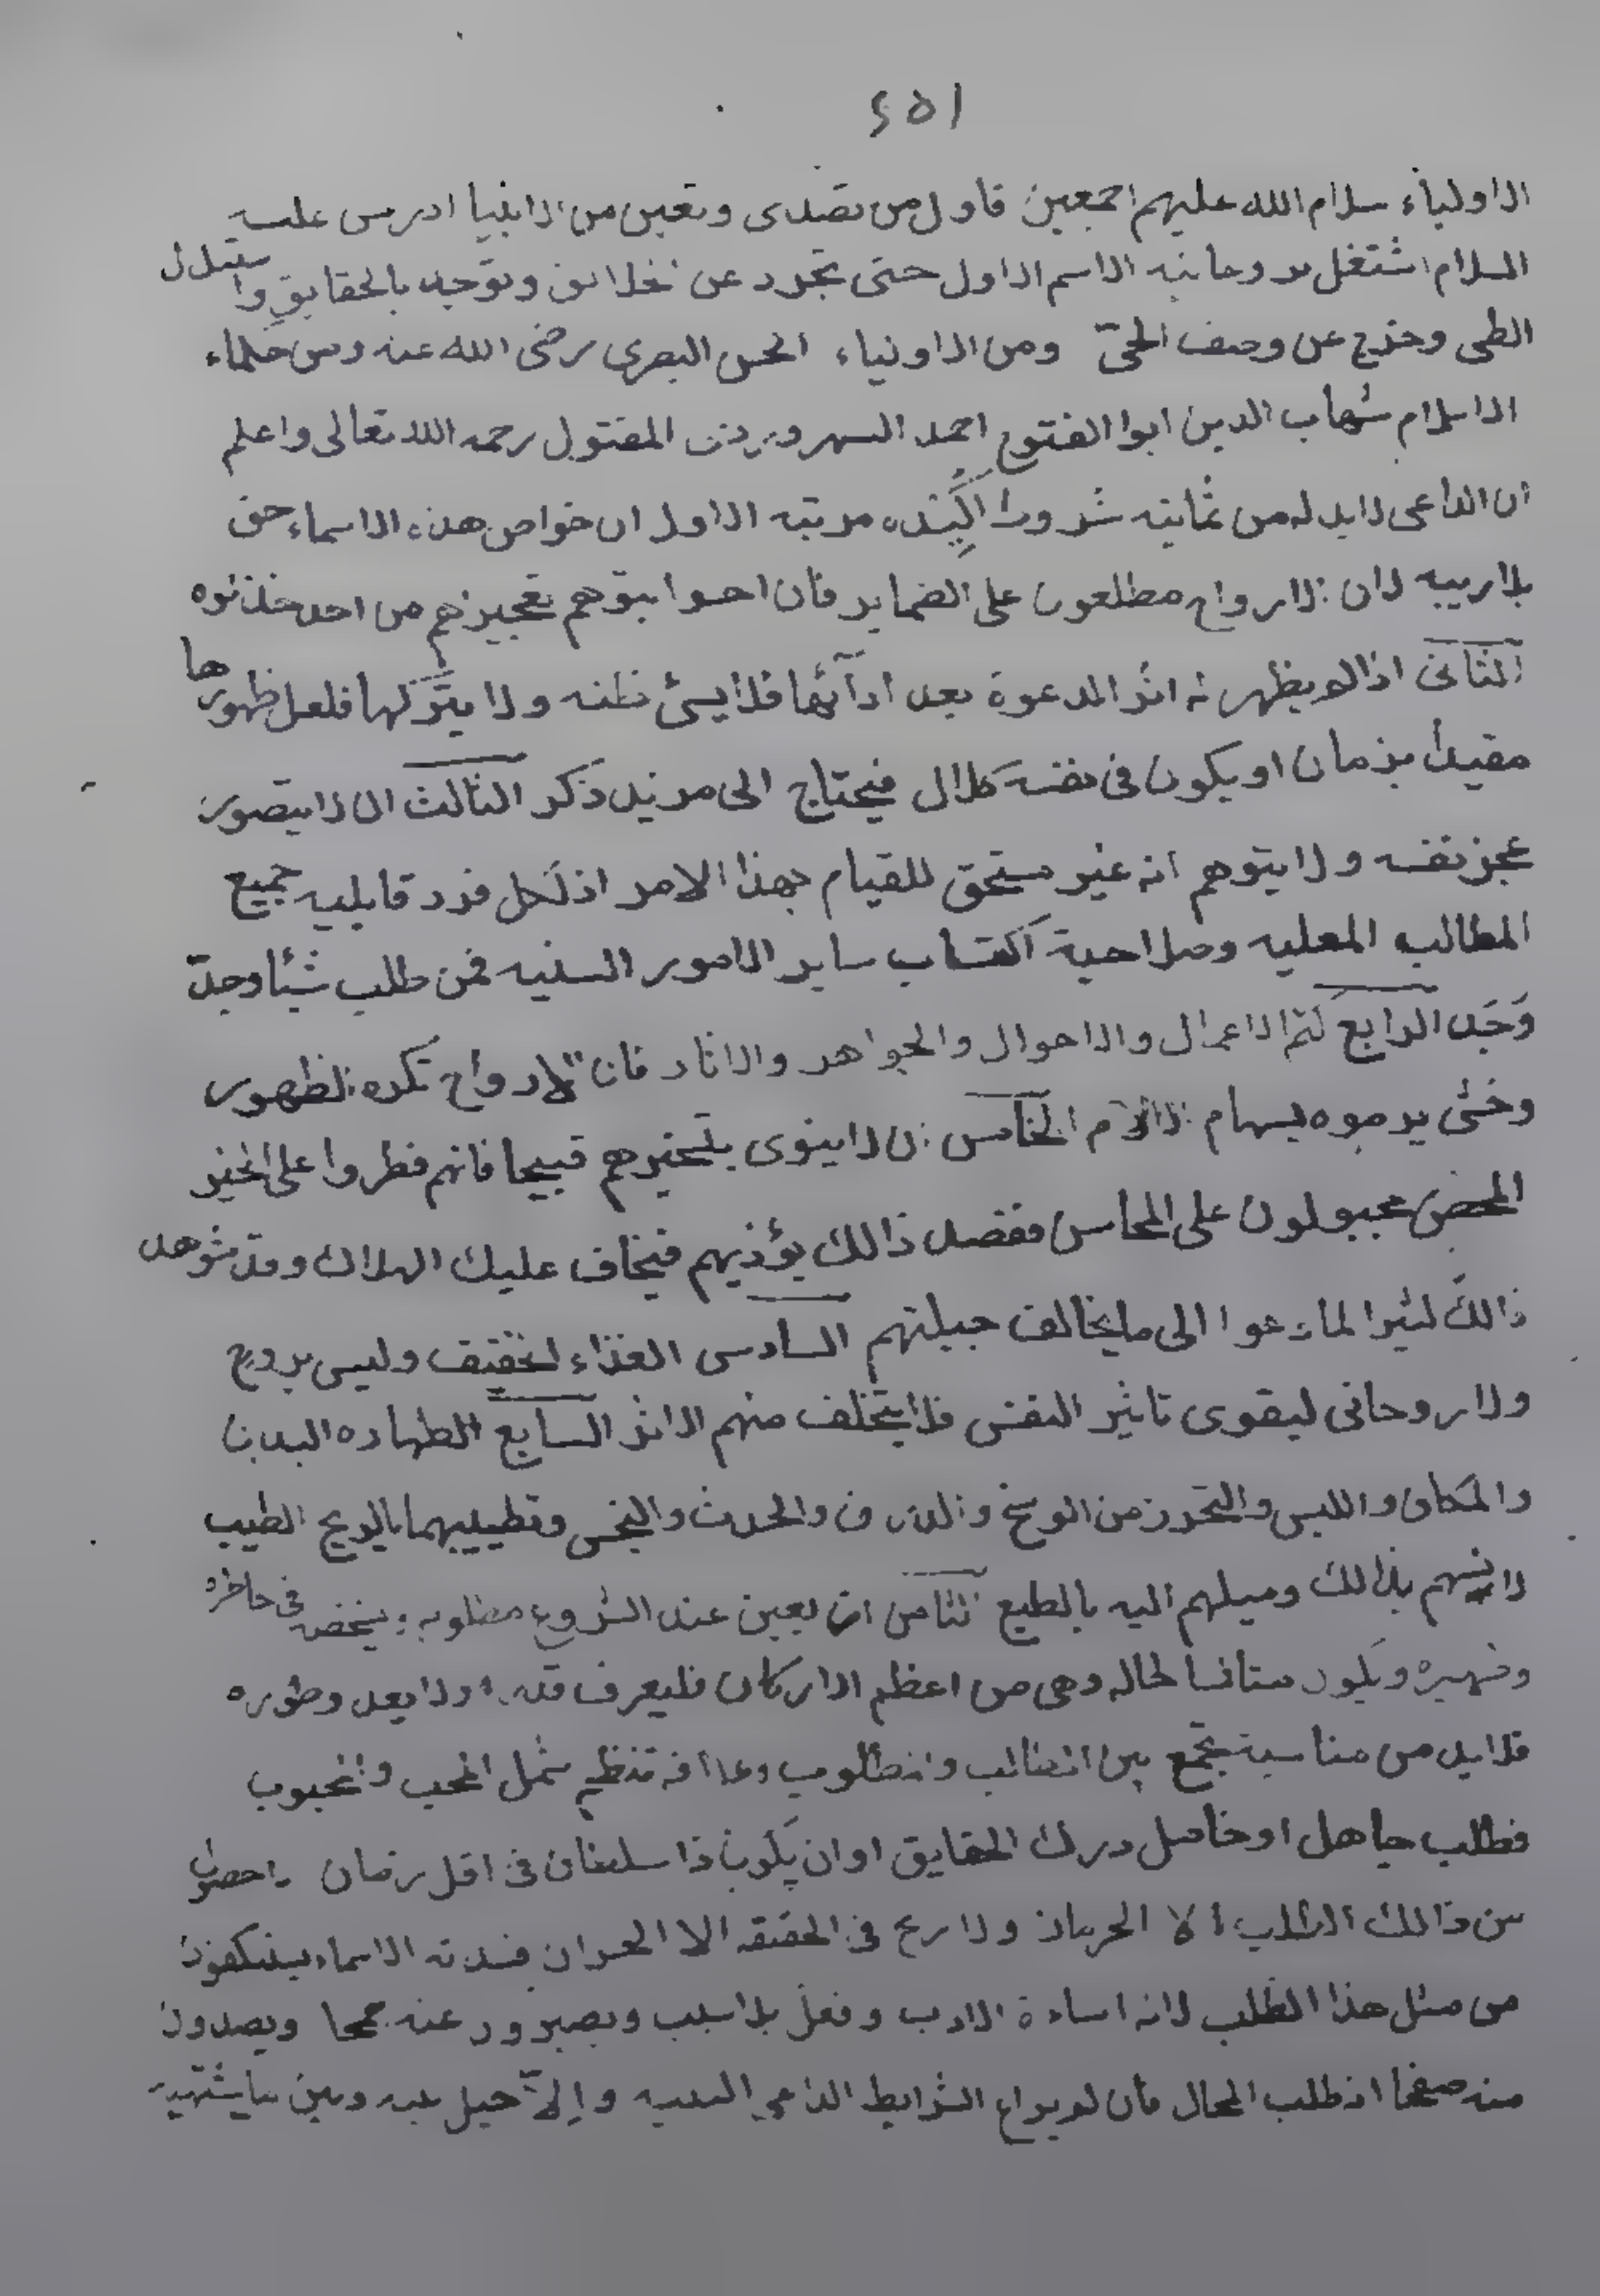 ٢٥١
الاولياء سلام الله عليهم اجمعين فاول من تصدى وتعين من الانبيا ادريس عليه
السلام اشتغل بروحانيه الاسم الاول حتى تجرد عن وتوجه بالحقايق و
الطى وخرج عن وصف الحىّ ومن الاولياء الحسن البصرى رضى الله عنه ومن حكماء
الاسلام شهاب الدين ابوا الفتوح احمد السهروردى المقتول رحمه الله تعالى واعلم
ان الداعى لابد له من ثمانيه شروط مرتبه الاول ان خواص هذه الاسماء حق
بلا ريبه لان الارواح مطلعون على الضماير فان احسوا بتوهم تعجيزهم من احد خذلوه
الثانى اذا لم يظهر له اثر الدعوة بعد ادآئها فلا يسئ ظنه ولا يتركها فلعل ظهورها
مقيدا بزمان او يكون فى نفسه كلال فيحتاج الى مزيد ذكر الثالث ان لا يتصور
عجز نفسه ولا يتوهم انه غير مستحق للقيام بهذا الامر اذ لكل فرد قابليه جميع
المطالب العليه وصلاحية اكتساب ساير الامور السنيه فمن طلب شيئا وجدّ
وَجَد الرابع كتم الاعمال والاحوال والجواهر والاثار فان الارواح تكره الظهور
وخشى يرموه بسهام الخامس ان لا ينوى بتسخيرهم قبيحا فانهم فطروا على الخير
المحض مجبولون على المحاسن فقصد ذالك يؤذيهم فيخاف عليك الهلاك وقد شوهد
ذالك كثيرا لما دعوا الى ما يخالف جبلتهم السادس الغذاء الخفيف وليس بروح
ولا روحانى ليقوى تاثير النفس فلا يتخلف منهم الاثر السابع الطهاره البدن
والمكان واللبس والتحرز من الوسخ والدرن والحدث والنجس وتطييبهما بالريح الطيب
لانسهم بذالك وميلهم اليه بالطبع الثامن ان يعين عند الشروع مطلوبه فى خاطره
وضميره ويكون لحاله وهى من اعظم الاركان فليعرف قدره ولا يعد وطوره
فلا بد من مناسبة تجمع بين الطالب والمطلوب وعلاقه تنظم شمل المحب والمحبوب
فطلب جاهل او خامل درك الحقايق او ان يكون ذا سلطان فى اقل زمان
من ذالك الطلب الا الحرمان ولا ربح فى الحقيقه الا الخسران الاسماء يستنكفون
من مثل هذا الطلب لانه اساءة الادب وفعل بلا سبب عنه ويصدون
منه صفحا اذ طلب المحال فان لم يراع الشرايط الداعى وإلاّ حيل بينه وبين ما يشتهيه